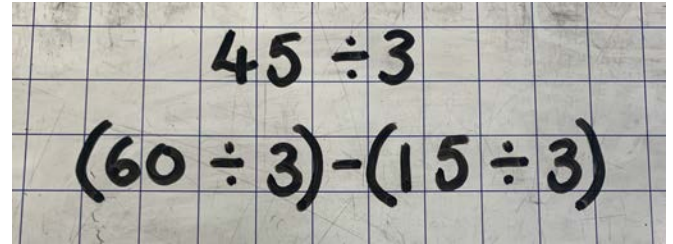 45 ÷ 3
(60 ÷ 3) - (15 ÷ 3)